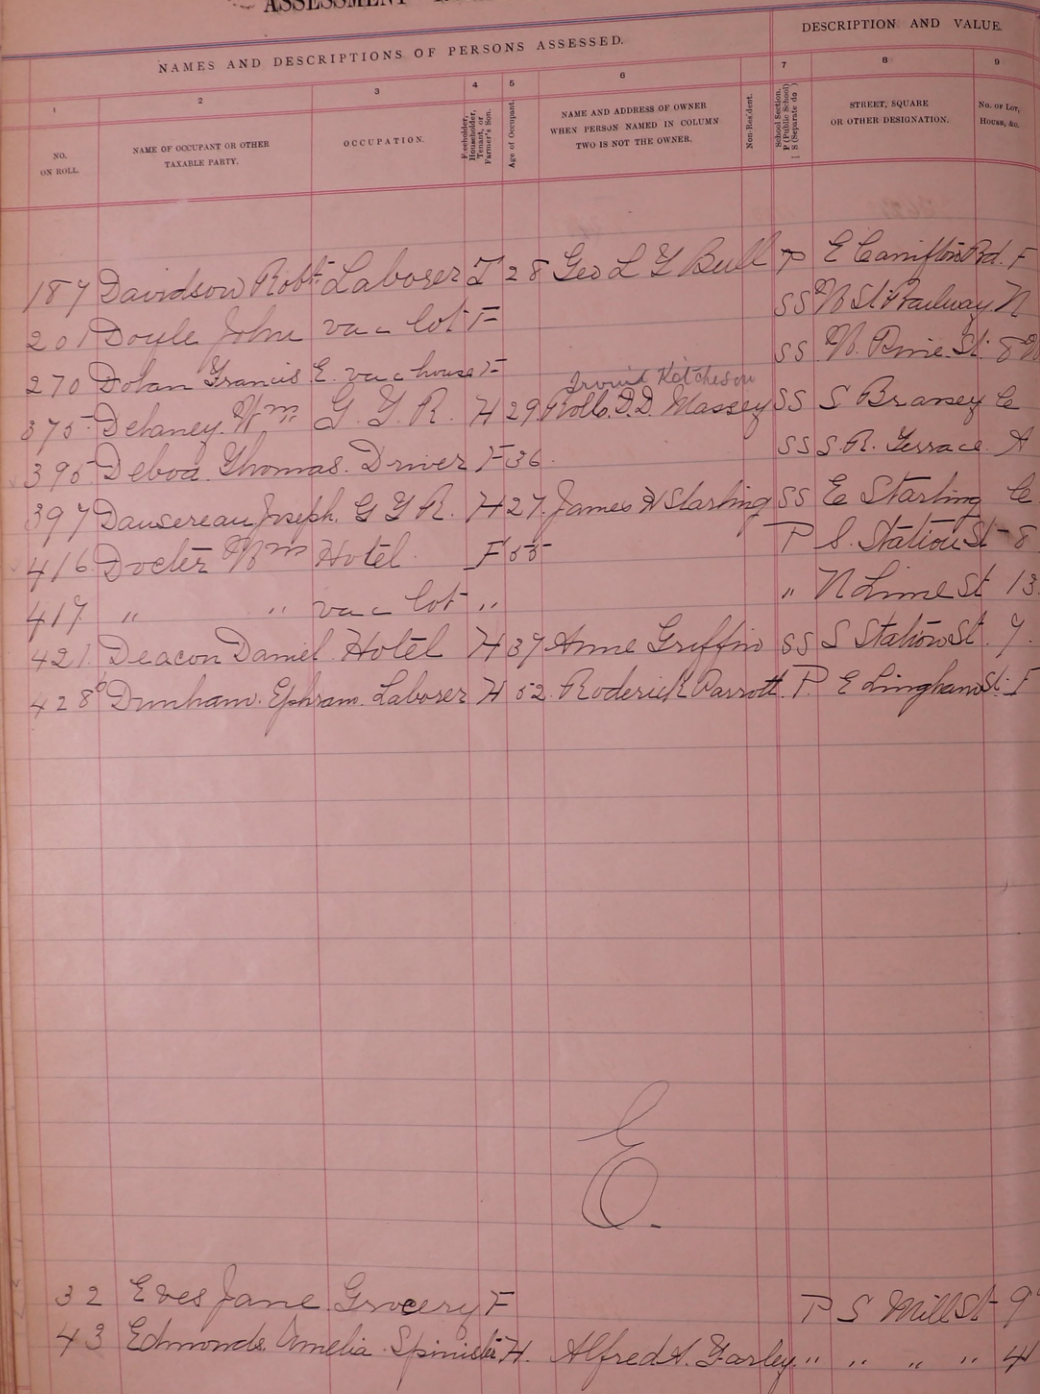 ASSESSMENT
NAMES AND DESCRIPTIONS OF PERSONS ASSESSED.
DESCRIPTION AND VALUE.
1 2 3 4 5 6 7 8 9
NO. ON ROLL.
NAME OF OCCUPANT OR OTHER TAXABLE PARTY.
OCCUPATION.
Freeholder, Householder, Tenant, or Farmer's Son.
Age of Occupant.
NAME AND ADDRESS OF OWNER WHEN PERSON NAMED IN COLUMN TWO IS NOT THE OWNER.
Non-Resident.
School Section. P (Public School) S (Separate do )
STREET, SQUARE OR OTHER DESIGNATION.
No. of Lot, House, &c.
187 Davidson Robt Laborer T 28 Geo L Y Bull P E Canifton Rd. F
201 Doyle John vac lot F SS N St Railway N
270 Dolan Francis E. vac house F SS W. Pine St. 8
Irvin Ketcheson
375 Delaney Wm G. T. R. H 29 Rolls. D.D. Massey SS S Brassey
395 Deboa Thomas. Driver F 36. SS S. R. Terrace A
397 Dausereau Joseph. G T R. H 27. James H Starling SS E Starling
416 Docter Wm Hotel. F 55 P S. Station St 8
417 " " vac lot " " N Lime St 13
421. Deacon Daniel. Hotel H 37 Anne Griffin SS S Station St. 7.
428 Dunham. Ephram. Laborer H 52. Roderick Parrott. P. E Lingham St. F
E.
32 Eves Jane Grocery F P S Mill St 9
43 Edmonds Amelia. Spinister H. Alfred A. Farley. " " " " 4